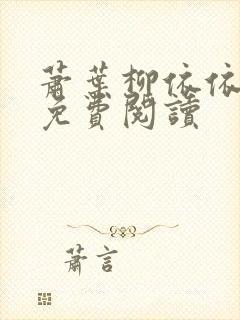 蕭葉柳依依
免費閱讀
蕭言